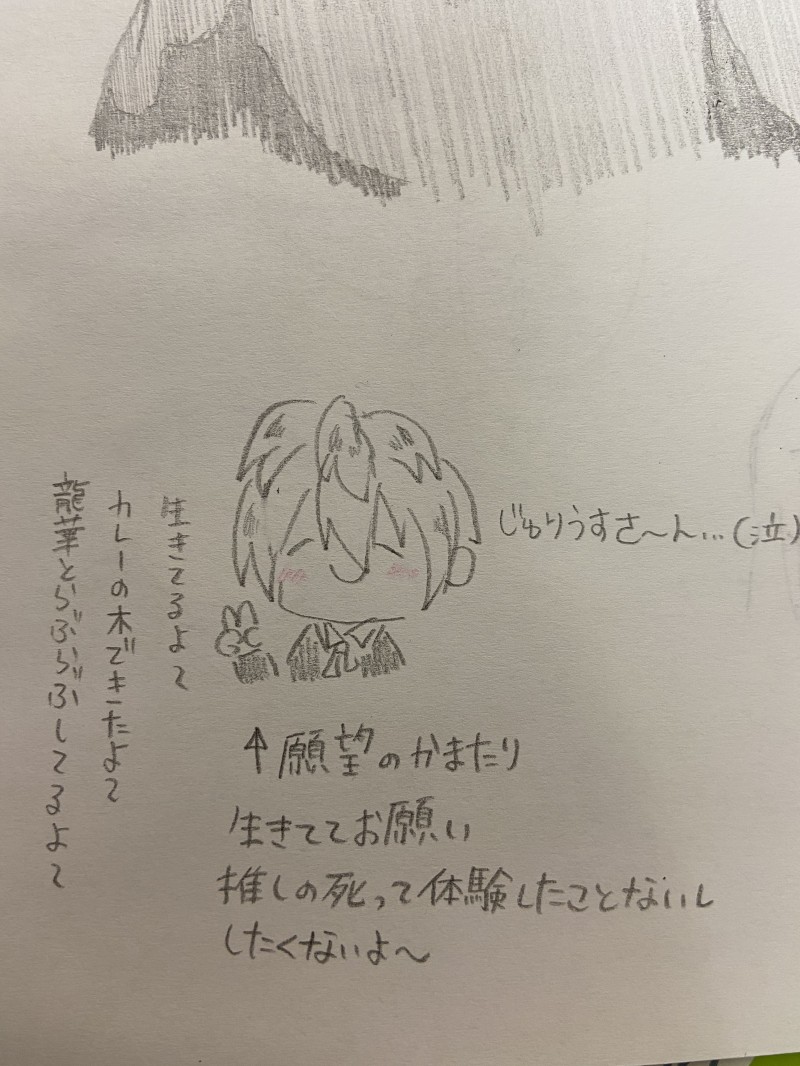 生きてるよ〜
カレーの木できたよ〜
龍華とらぶらぶしてるよ〜
じゅりうすさ〜ん…(泣)
↑願望のかまたり
生きててお願い
推しの死って体験したことないし
したくないよ〜